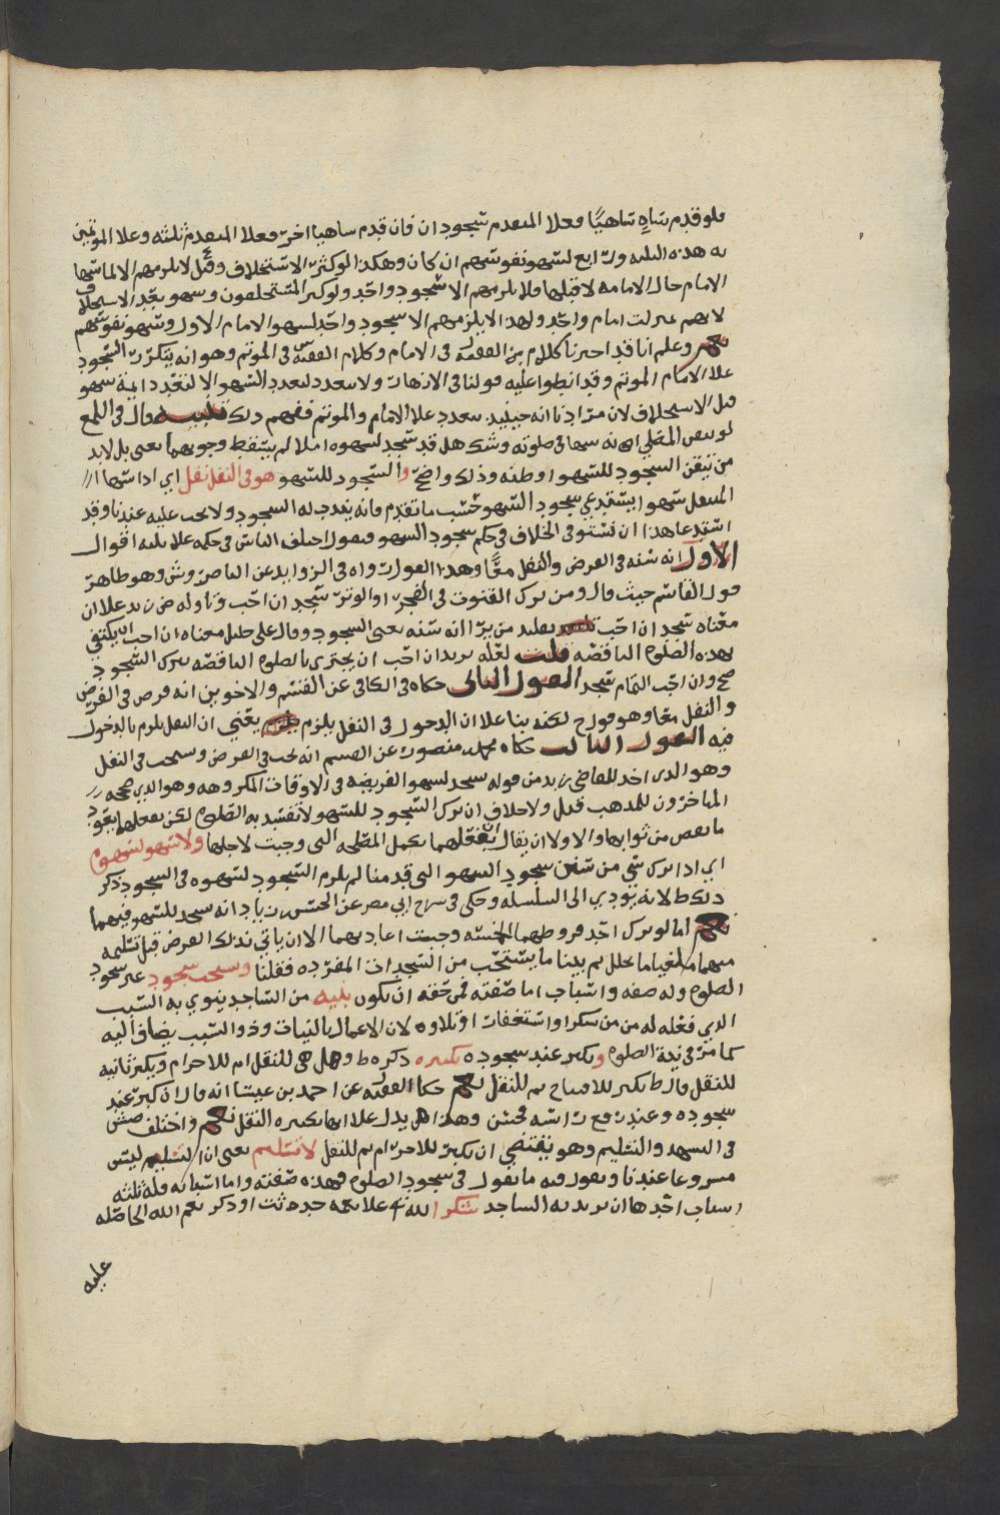 فلو قدم ساهٍ ساهيًا فعلا المتقدم سجود ان فان قدم ساهيا اخر فعلا المتقدم ثلثه وعلا الموتمين
به هذه الثلثه ورابع لسهو نفوسهم ان كان وهكذا لو كثر الاستخلاف وقيل لا يلزمهم الا لما سها
الامام حال الامامه لا قبلها فلا يلزمهم الا سجود واحد ولو كثر المستخلفون وسهو بعد الاستخلاف
لانهم بمنزلت امام واحد ولهذا لا يلزمهم الا سجود واحد لسهو الامام الاول وسهو نفوسهم
نعم وعلم انا قد اخبرنا كلام من الفقيه ل في الامام وكلام الفقيه س في الموتم وهو انه يتكرر السجود
علا الامام الموتم وقد انطوا عليه قولنا في الازهار ولا يتعدد لتعدد السهو الا لتعدد ايمة سهو
قبل الاستخلاف لان مرادنا انه حينيد يتعدد علا الامام والموتم ففهم ذلك تنبيه قال في اللمع
لو تيقن المصلي انه سها في صلوته وشك هل قد سجد لسهوه ام لا لم يسقط وجوبهما يعني بل لابد
من تيقن السجود للسهو او ظنه وذلك واضح والسجود للسهو هو في النفل نفل اي اذا سها
المتنفل سهوا يستدعي سجود السهو حسب ما تقدم فانه يندب له السجود ولا يجب عليه عندنا وقد
استدعا هذا ان نستوفي الخلاف في حكم سجود السهو فنقول اختلف الناس في حكمه علا ثلثه اقوال
الاول انه سنه في الفرض والنفل معًا وهذا القول رواه في الزوايد عن الناصر وش وهو ظاهر
قول القاسم حيث قال ومن ترك القنوت في الفجر او الوتر سجد ان احب وتاوله ض زيد علا ان
معناه سجد ان احب تقليد من يرا انه سنه يعني السجود وقال علي خليل معناه ان احب ان يكتفي
بهذه الصلوه الناقصه قلت لعله يريد ان احب ان يجتزي بالصلوه الناقصه بترك السجود
صح وان احب التمام سجد القول الثاني حكاه في الكافي عن القسم والاخوين انه فرض في الفرض
والنفل معا وهو قول ح لكنه بنا علا ان الدخول في النفل يلزم يعني ان النفل يلزم بالدخول
فيه القول الثالث حكاه محمد بن منصور عن القسم انه يجب في الفرض ويستحب في النفل
وهو الذي اخذ للقاضي زيد من قوله سجد لسهو الفريضه في الاوقات المكروهه وهو الذي صححه
المتاخرون للمذهب قيل ولا خلاف ان ترك السجود للسهو لا تفسد به الصلوه لكن بفعلها يعود
ما نقص من ثوابها والاولا ان يقال ان بفعلهما تكمل المصلحه التي وجبت لاجلها ولا سهو لسهوه
اي اذا ترك شي من سنن سجود السهو التي قدمنا لم يلزم السجود لسهوه في السجود ذكر
ذلك ط لانه يودي الى السلسله وحكى في شرح ابي مضر عن الحسن بن زياد انه سجد للسهو فيهما
نعم اما لو ترك احد فروضهما الخمسه وجبت اعادتهما الا ان ياتي بذلك الفرض قبل تسليمه
منهما ملغيا ما تخلل ثم بينا ما يستحب من السجدات المفرده فقلنا ويستحب سجود غير سجود
الصلوه وله صفه واسباب اما صفته فمن حقه ان يكون بنيه من الساجد ينوي به السبب
الذي فعله له من من شكرا واستغفار او تلاوه لان الاعمال بالنيات وذو السبب يضاف اليه
كما مر في نية الصلوه وتكبر عند سجوده تكبيره ذكره ط وهل هي للنقل ام للاحرام ويكبر ثانيه
للنقل قال ط تكبر للافتتاح ثم للنقل نعم حكا الفقيه عن احمد بن عيسا انه قال ان كبر عند
سجوده وعند رفع راسه فحسن وهذا هل يدل علا انها تكبيره النقل نعم واختلف صش
في التشهد والتسليم وهو يقتضي ان تكبر للاحرام ثم للنقل لا تسليم يعني ان التسليم ليس
مشروعا عندنا ويقول فيه ما يقول في سجود الصلوه فهذه صفته واما اسبابه فله ثلثه
اسباب احدها ان يريد به الساجد شكرا لله تع علا نعمه جده ثت او ذكر نعم الله الحاصله
عليه